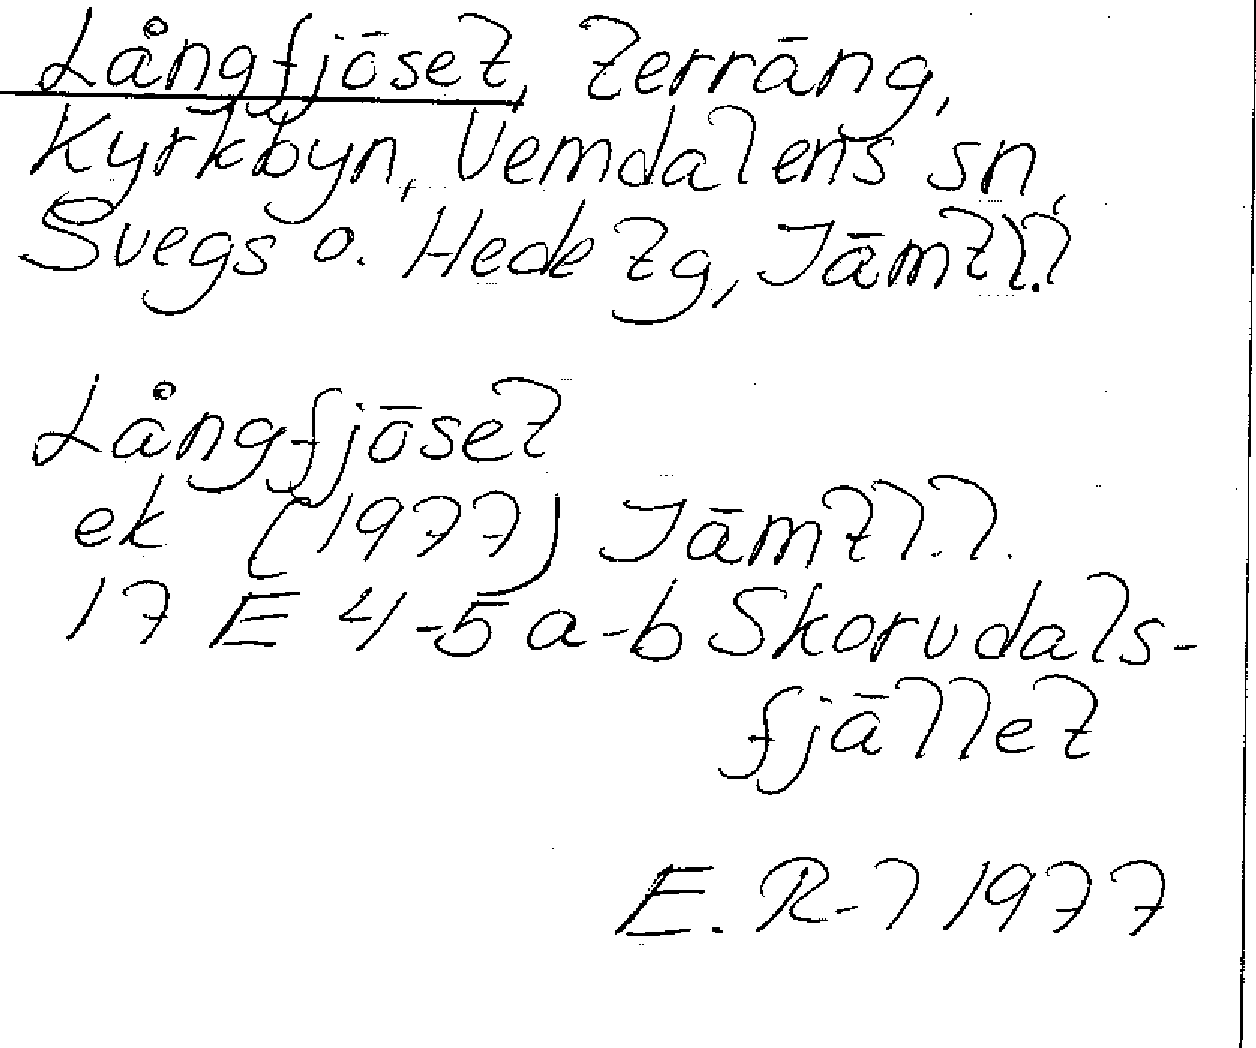 Långfjöset, terräng,
Kyrkbyn, Vemdalens sn,
Svegs o. Hede tg, Jämtl.l
Långfjöset
ek (1977) Jämtl.l.
17 E 4-5 a-b Skorvdals-
fjället
E. R-l 1977